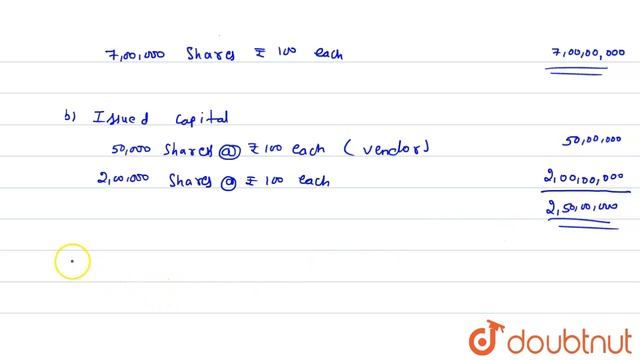 7,00,000 Shares ₹ 100 each 7,00,00,000
b) Issued capital
50,000 Shares @ ₹ 100 each (vendor) 50,00,000
2,00,000 Shares @ ₹ 100 each 2,00,00,000
2,50,00,000
doubtnut